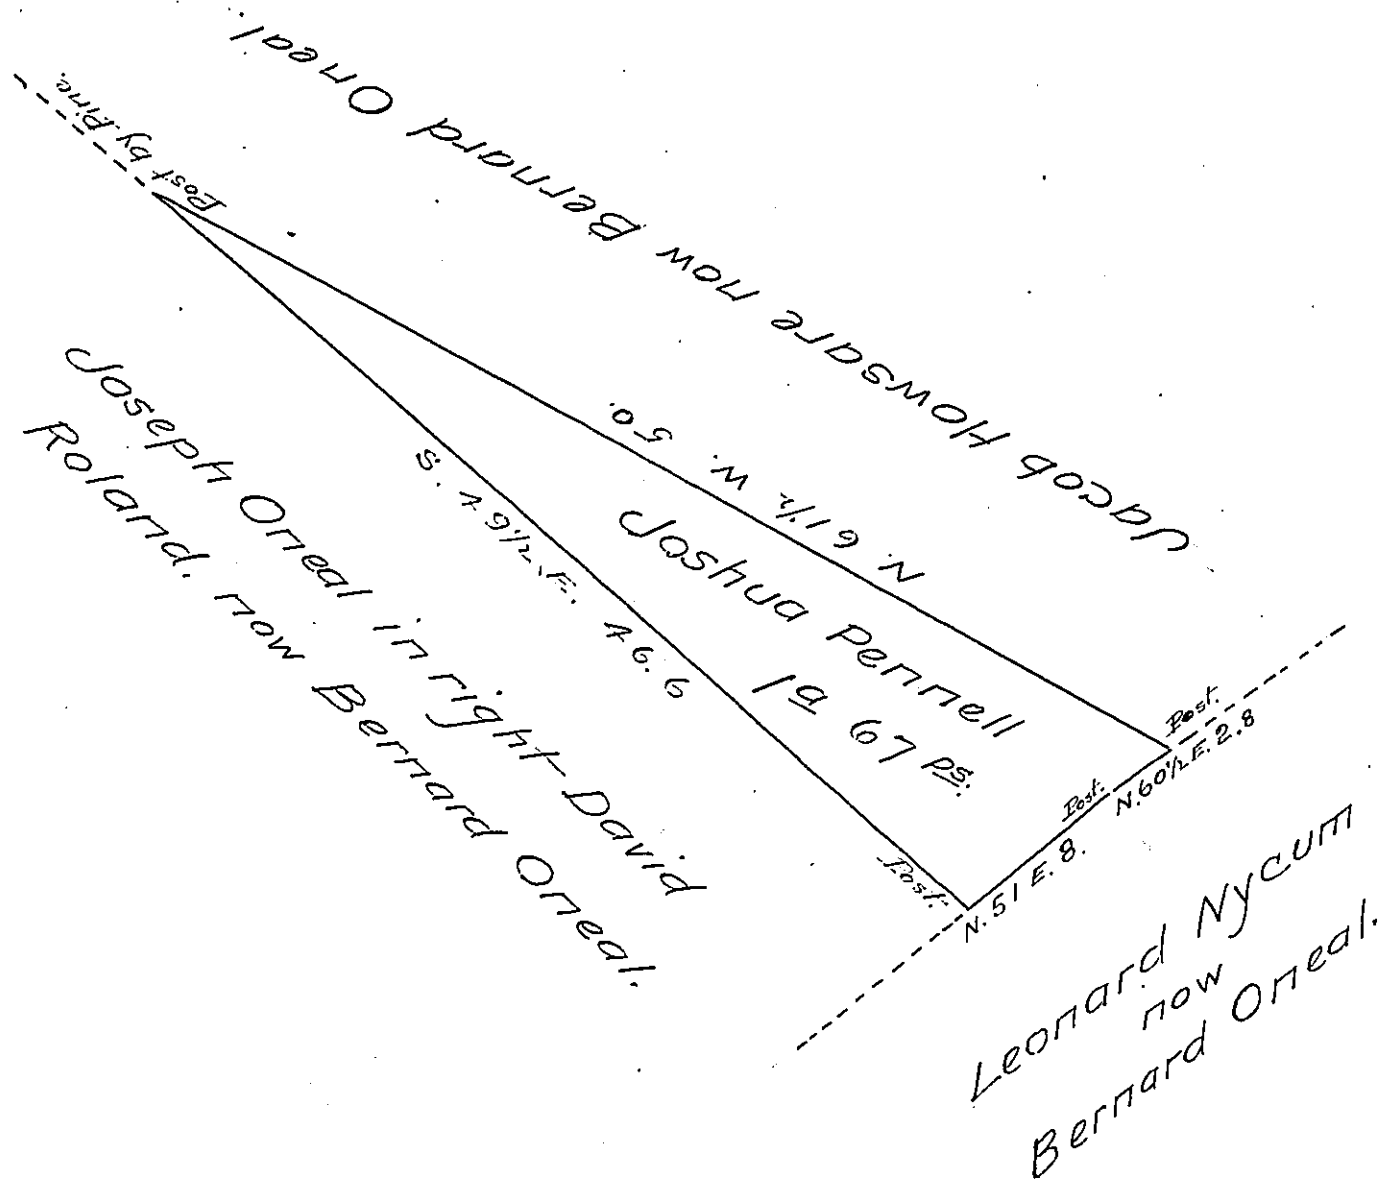 Jacob Howsare now Bernard Oneal
Post by Pine.
N. 61½ W. 50.
Joshua Pennell
1a 67 ps.
S. 49½ E. 46.6
Joseph Oneal in right David
Roland. now Bernard Oneal.
Post.
N. 51 E. 8.
Post.
N. 60½ E. 2.8
Post.
Leonard Nycum
now
Bernard Oneal.